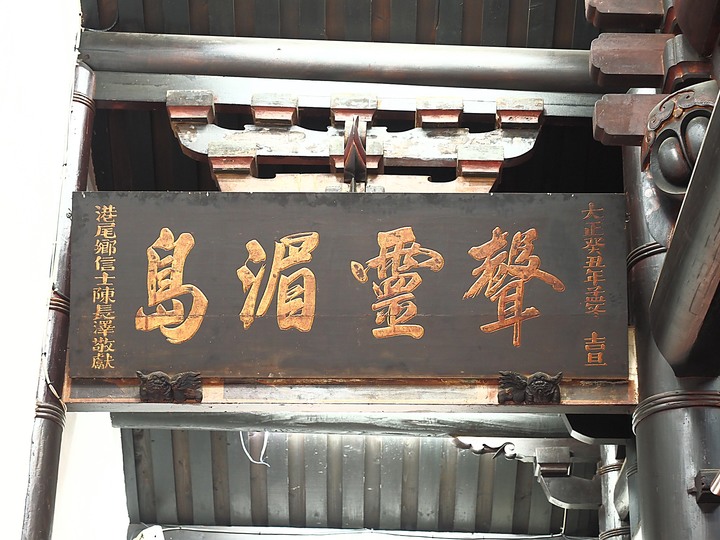 大正癸丑年孟冬 吉旦
聲靈湄島
港尾鄉信士陳長澤敬獻